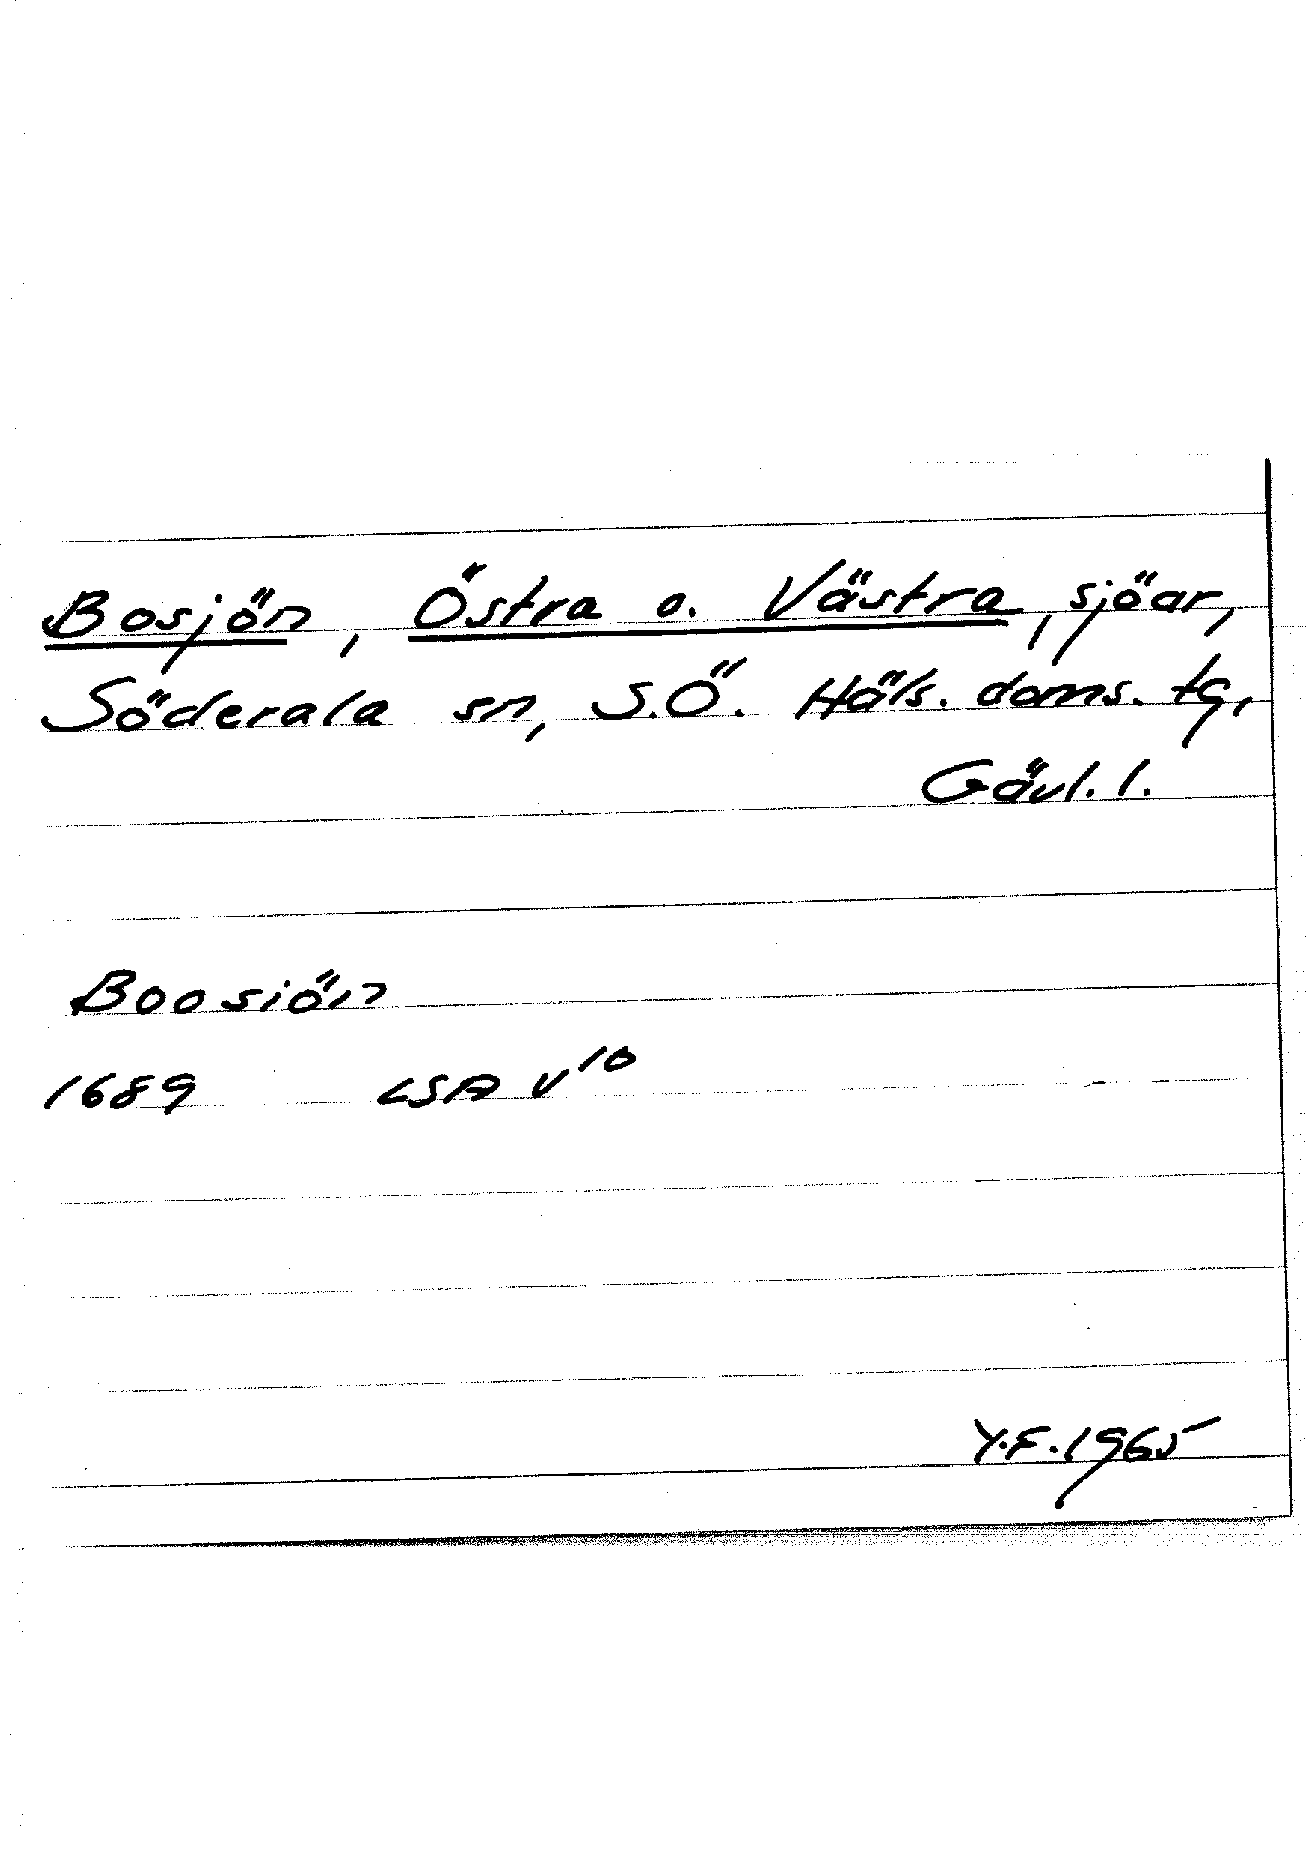 Bosjön, Östra o. Västra, sjöar,
Söderala sn, S.Ö. Häls. doms. tg,
Gävl. l.
Boosiön
1689 LSA V¹⁰
Y.F. 1965